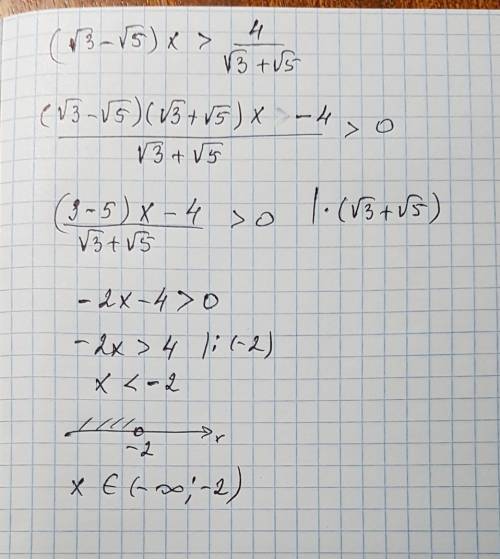 (√3 - √5) x > 4/(√3 + √5)
((√3 - √5)(√3 + √5) x - 4)/(√3 + √5) > 0
((3 - 5) x - 4)/(√3 + √5) > 0 |· (√3 + √5)
- 2x - 4 > 0
- 2x > 4 |: (-2)
x < -2
-2 x
x ∈ (-∞; -2)